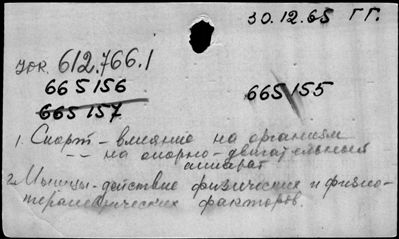 30.12.65 ГГ.
УОК. 612.766.1
665156
665157
665155
1. Спорт - влияние на организм
-- на опорно-двигательный
аппарат
2. Мышцы-действие физических и физио-
терапевтических факторов.